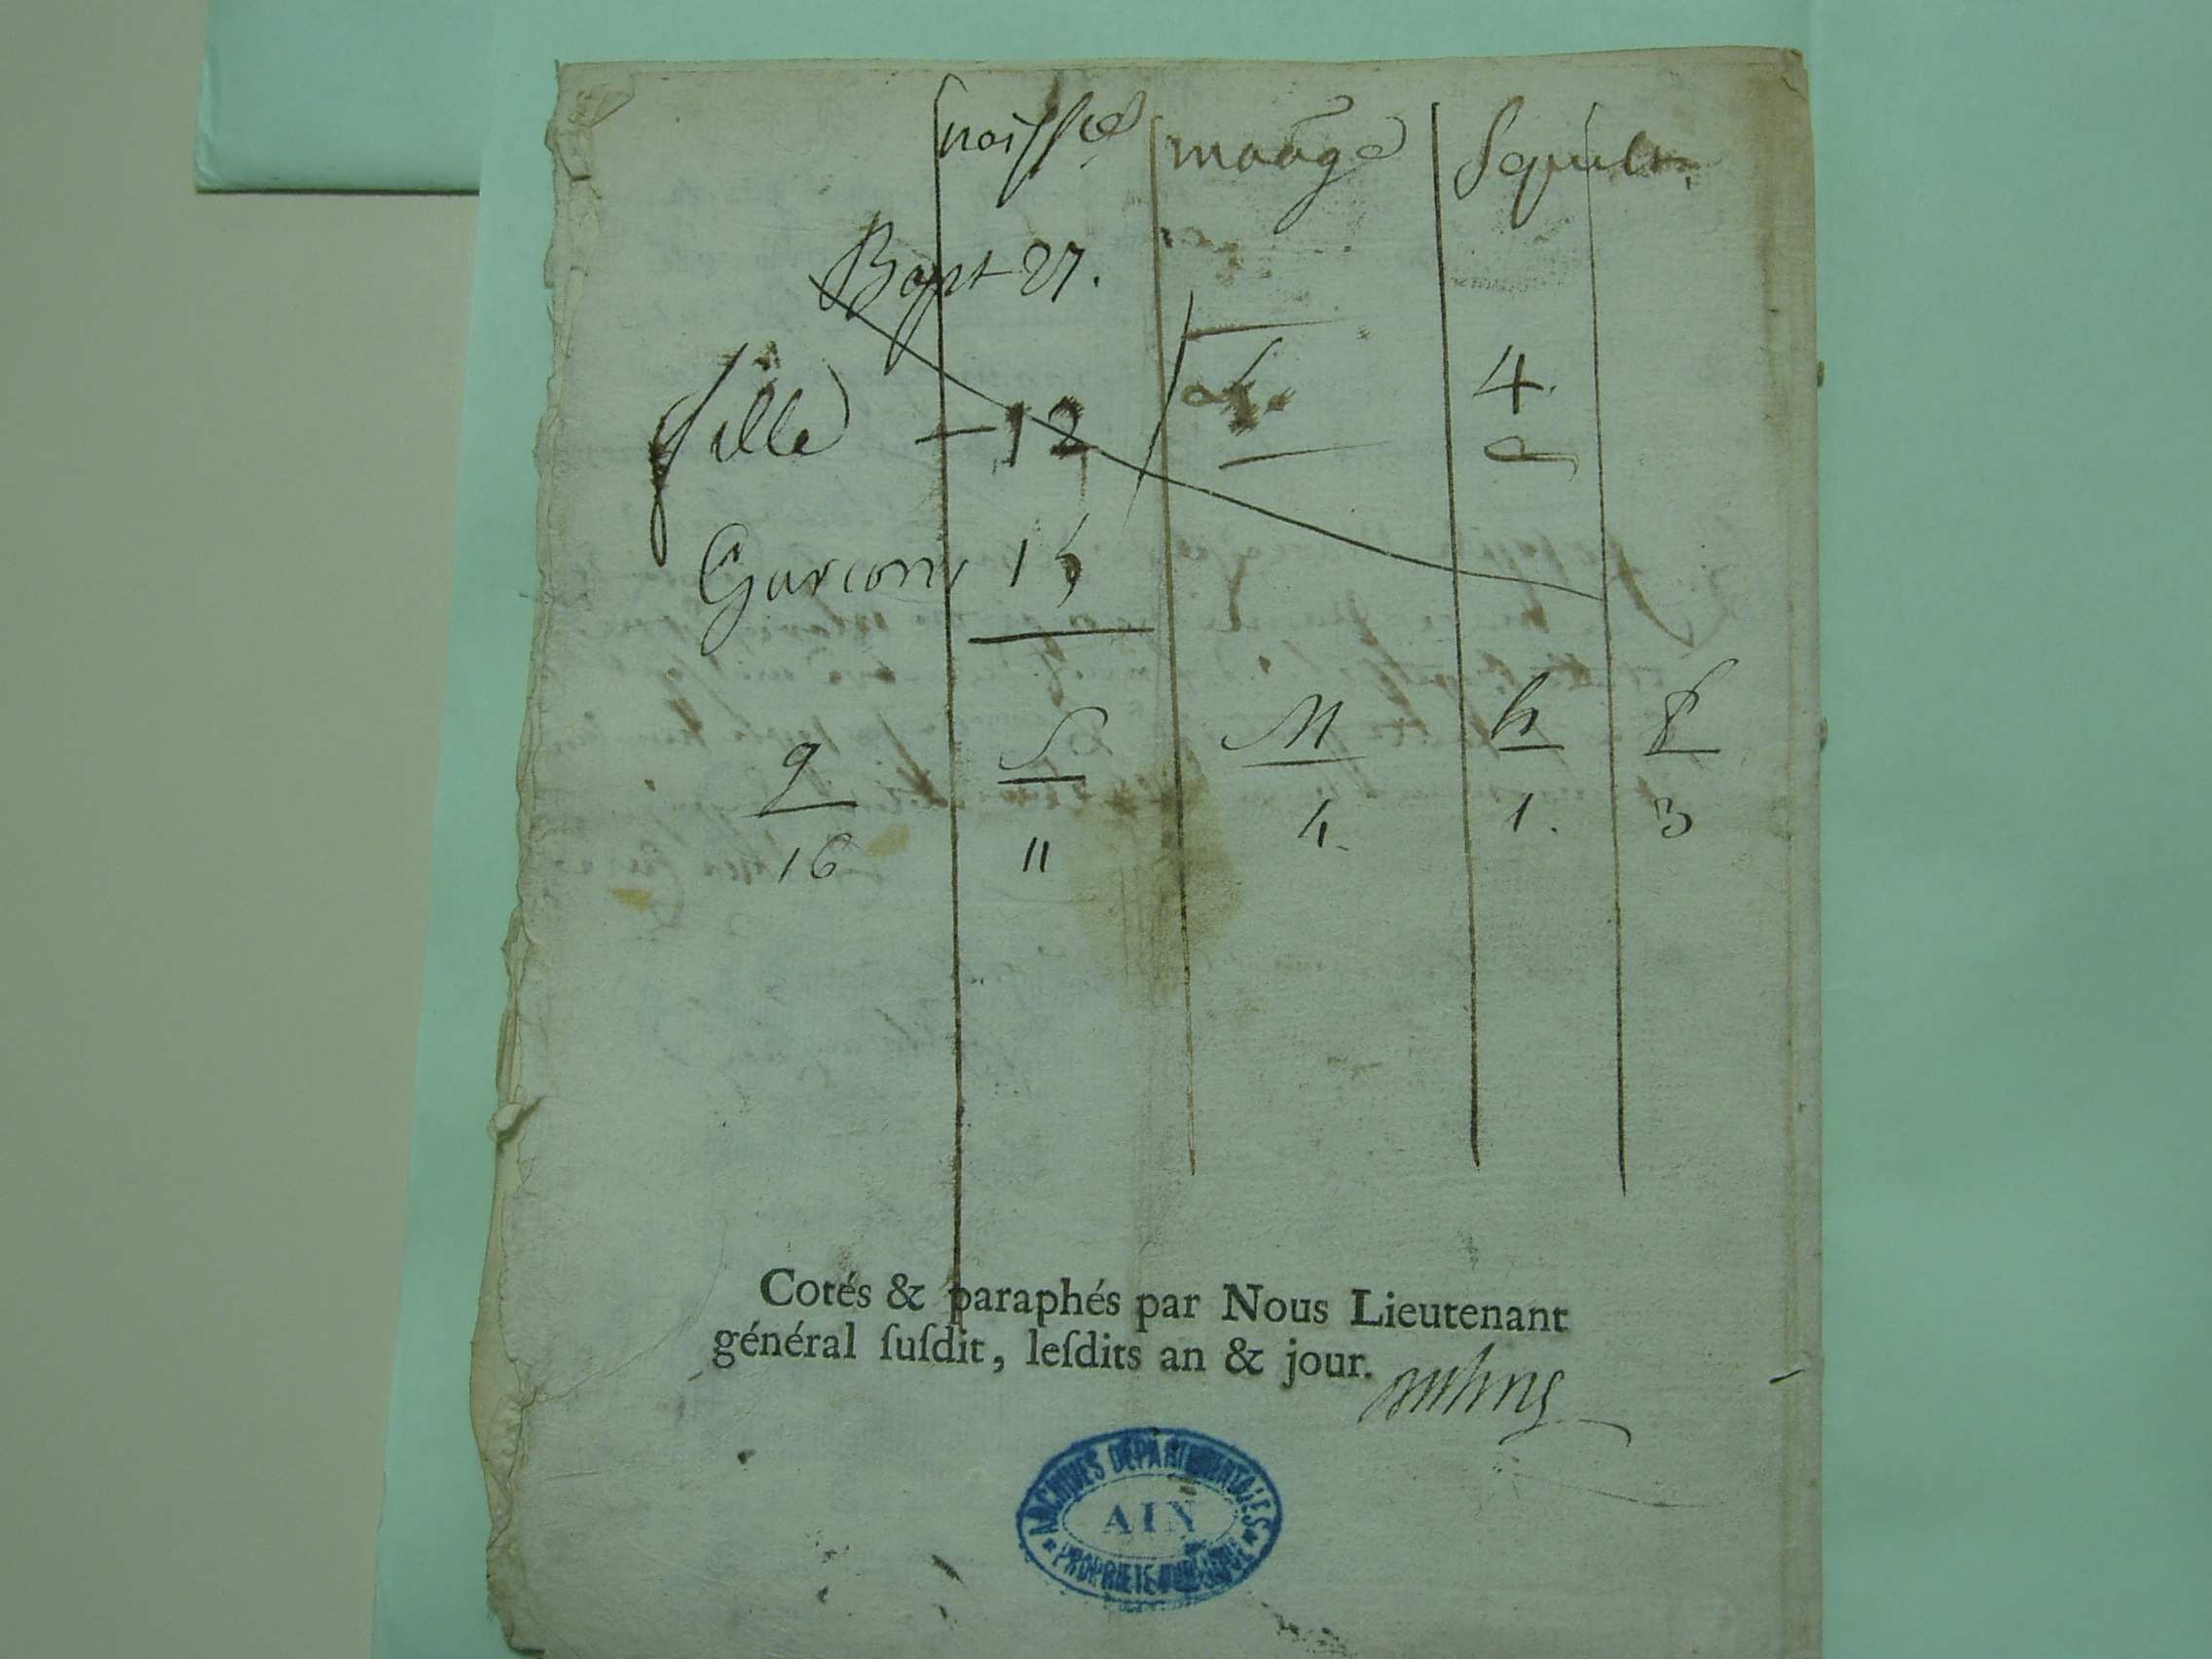 naissce mariage Sepult.
Bapt 27.
fille — 12 4.
Garcons 15
g f M h f
16 11 4. 1. 3
Cotés & paraphés par Nous Lieutenant
général ſuſdit, leſdits an & jour.
ARCHIVES DÉPARTEMENTALES
AIN
PROPRIÉTÉ PUBLIQUE